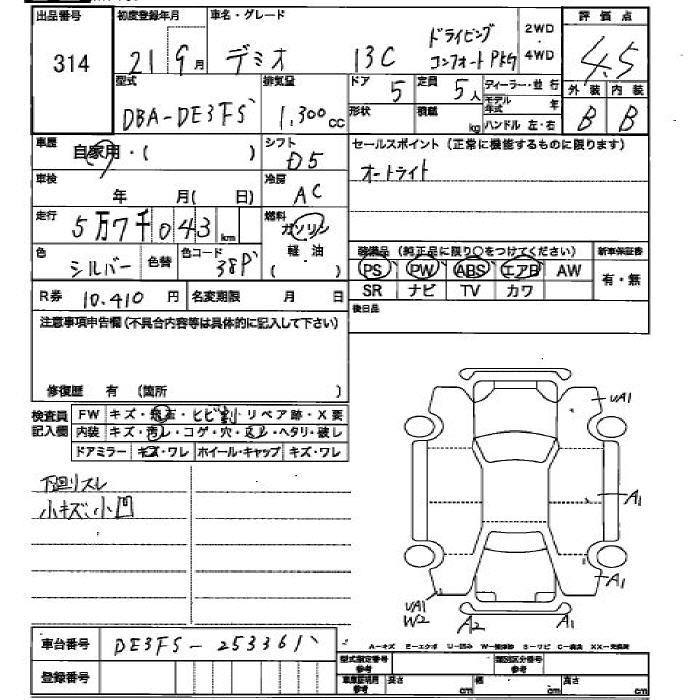 出品番号 314
初度登録年月 21 9月
車名・グレード デミオ 13C ドライビング コンフォートPKG
2WD・4WD
評価点 4.5
外装 B 内装 B
型式 DBA-DE3FS
排気量 1,300cc
ドア 5
定員 5人
ディーラー・並行
形状
積載 kg
モデル年式 年
ハンドル 左・右
車歴 自家用・( )
シフト D5
セールスポイント(正常に機能するものに限ります)
オートライト
車検 年 月( 日)
冷房 AC
走行 5万7千043km
燃料 ガソリン 軽・油 ( ・ )
色 シルバー 色替
色コード 38P
装備品(純正品に限り○をつけてください)
新車保証書 有・無
PS PW ABS エアB AW
SR ナビ TV カワ
R券 10.410 円
名変期限 月 日
後日品
注意事項申告欄(不具合内容等は具体的に記入して下さい)
修復歴 有 (箇所 )
検査員記入欄
FW キズ・飛石・ヒビ割・リペア跡・X要
内装 キズ・汚レ・コゲ・穴・スレ・ヘタリ・破レ
ドアミラー キズ・ワレ ホイール・キャップ キズ・ワレ
下回りスレ
小キズ、小凹
UA1
A1
A1
UA1
W2
A2
車台番号 DE3FS-253361
登録番号
A-キズ E-エクボ U-凹み
型式指定番号 参考
類別区分番号 参考
車庫証明用 参考
長さ cm 幅 cm 高さ cm